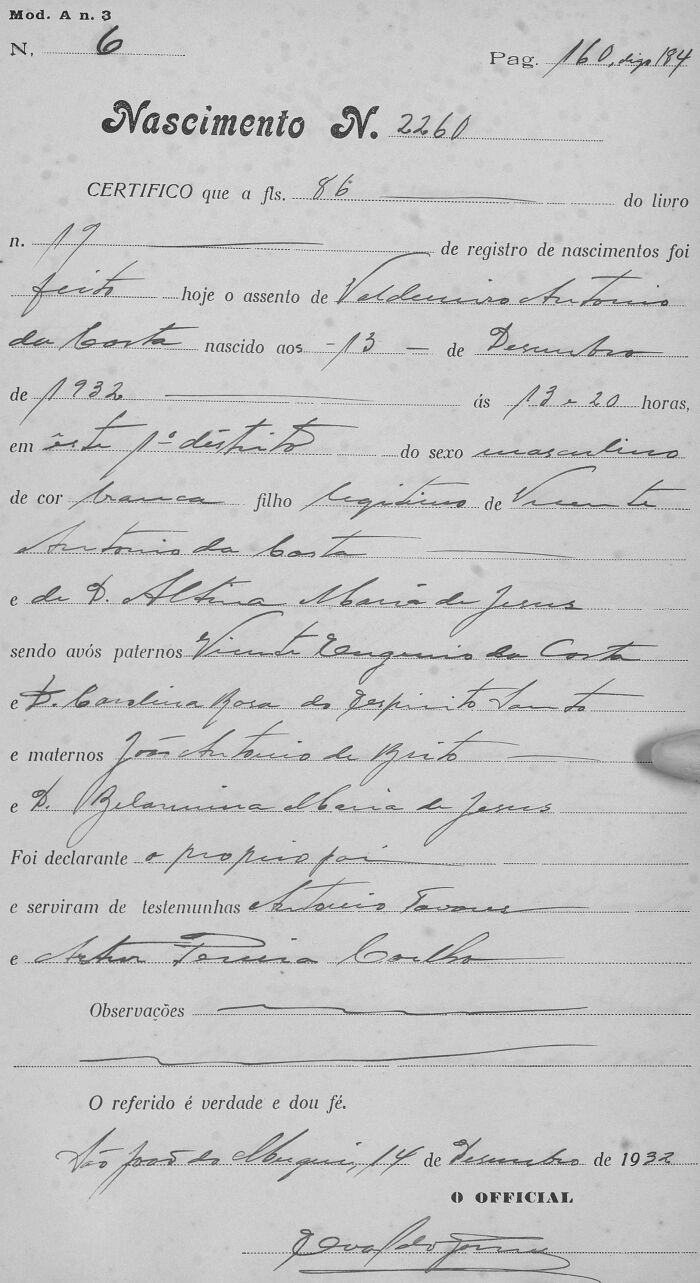 Mod. A n. 3
N. 6
Pag. 160, digo 184
Nascimento N. 2260
CERTIFICO que a fls. 86 do livro
n. 19 de registro de nascimentos foi
feito hoje o assento de Valdemiro Antonio
da Costa nascido aos 13 de Desembro
de 1932 ás 13 e 20 horas,
em êste 1º distrito do sexo masculino
de cor branca filho legitimo de Vicente
Antonio da Costa
e de D. Altina Maria de Jesus
sendo avós paternos Vicente Eugenio da Costa
e D. Carolina Rosa do Espirito Santo
e maternos João Antonio de Brito
e D. Belarmina Maria de Jesus
Foi declarante o proprio pai
e serviram de testemunhas Antonio Tavares
e Artur Pereira Coelho
Observações
O referido é verdade e dou fé.
São João do 14 de Desembro de 1932
O OFFICIAL